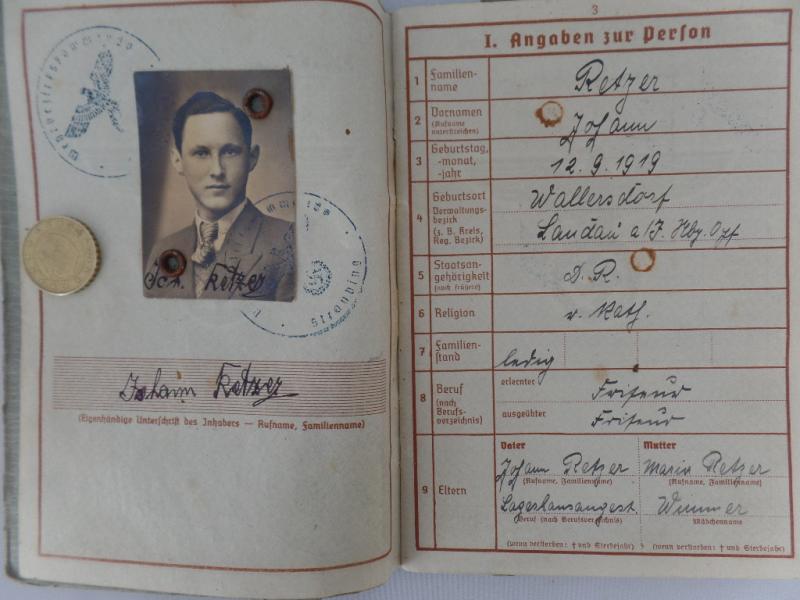 Joh. Retzer
Johann Retzer
(Eigenhändige Unterschrift des Inhabers — Rufname, Familienname)
3
I. Angaben zur Person
1 Familien-
name
Retzer
2 Vornamen
(Rufname
unterstreichen)
Johann
3 Geburtstag,
-monat,
-jahr
12.9.1919
4 Geburtsort
Verwaltungs-
bezirk
(z. B. Kreis,
Reg. Bezirk)
Wallersdorf
Landau a/I.
5 Staatsan-
gehörigkeit
(auch frühere)
D.R.
6 Religion
r. Kath.
7 Familien-
stand
ledig
8 Beruf
(nach
Berufs-
verzeichnis)
erlernter
Friseur
ausgeübter
Friseur
9 Eltern
Vater Mutter
Johann Retzer Maria Retzer
(Rufname, Familienname) (Rufname, Familienname)
Lagerhausangest. Wimmer
Beruf (nach Berufsverzeichnis) Mädchenname
(wenn verstorben: † und Sterbejahr) (wenn verstorben: † und Sterbejahr)